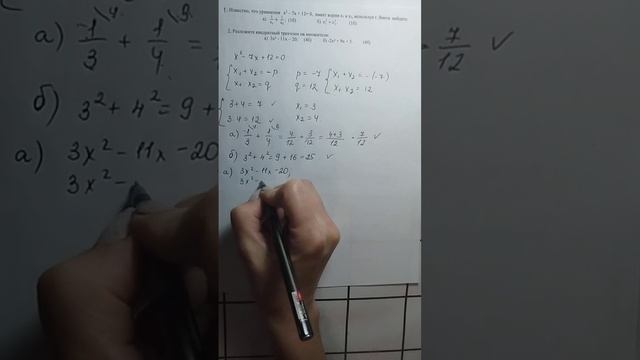 1. Известно, что уравнение x² – 7x + 12 = 0, имеет корни x₁ и x₂, используя т. Виета найдите:
а) 1/x₁ + 1/x₂; (1б) б) x₁² + x₂². (1б)
2. Разложите квадратный трехчлен на множители:
а) 3x² – 11x – 20; (4б) б) -2x² + 9x +
x² – 7x + 12 = 0
{ x₁ + x₂ = –p p = –7 { x₁ + x₂ = –(–7)
x₁ x₂ = q q = 12 x₁ x₂ = 12
{ 3 + 4 = 7 ✓ x₁ = 3
3·4 = 12 ✓ x₂ = 4
а) 1/3 + 1/4 = 4/12 + 3/12 = 4+3/12 = 7/12 ✓
б) 3² + 4² = 9 + 16 = 25 ✓
а) 3x² – 11x – 20;
3x² –